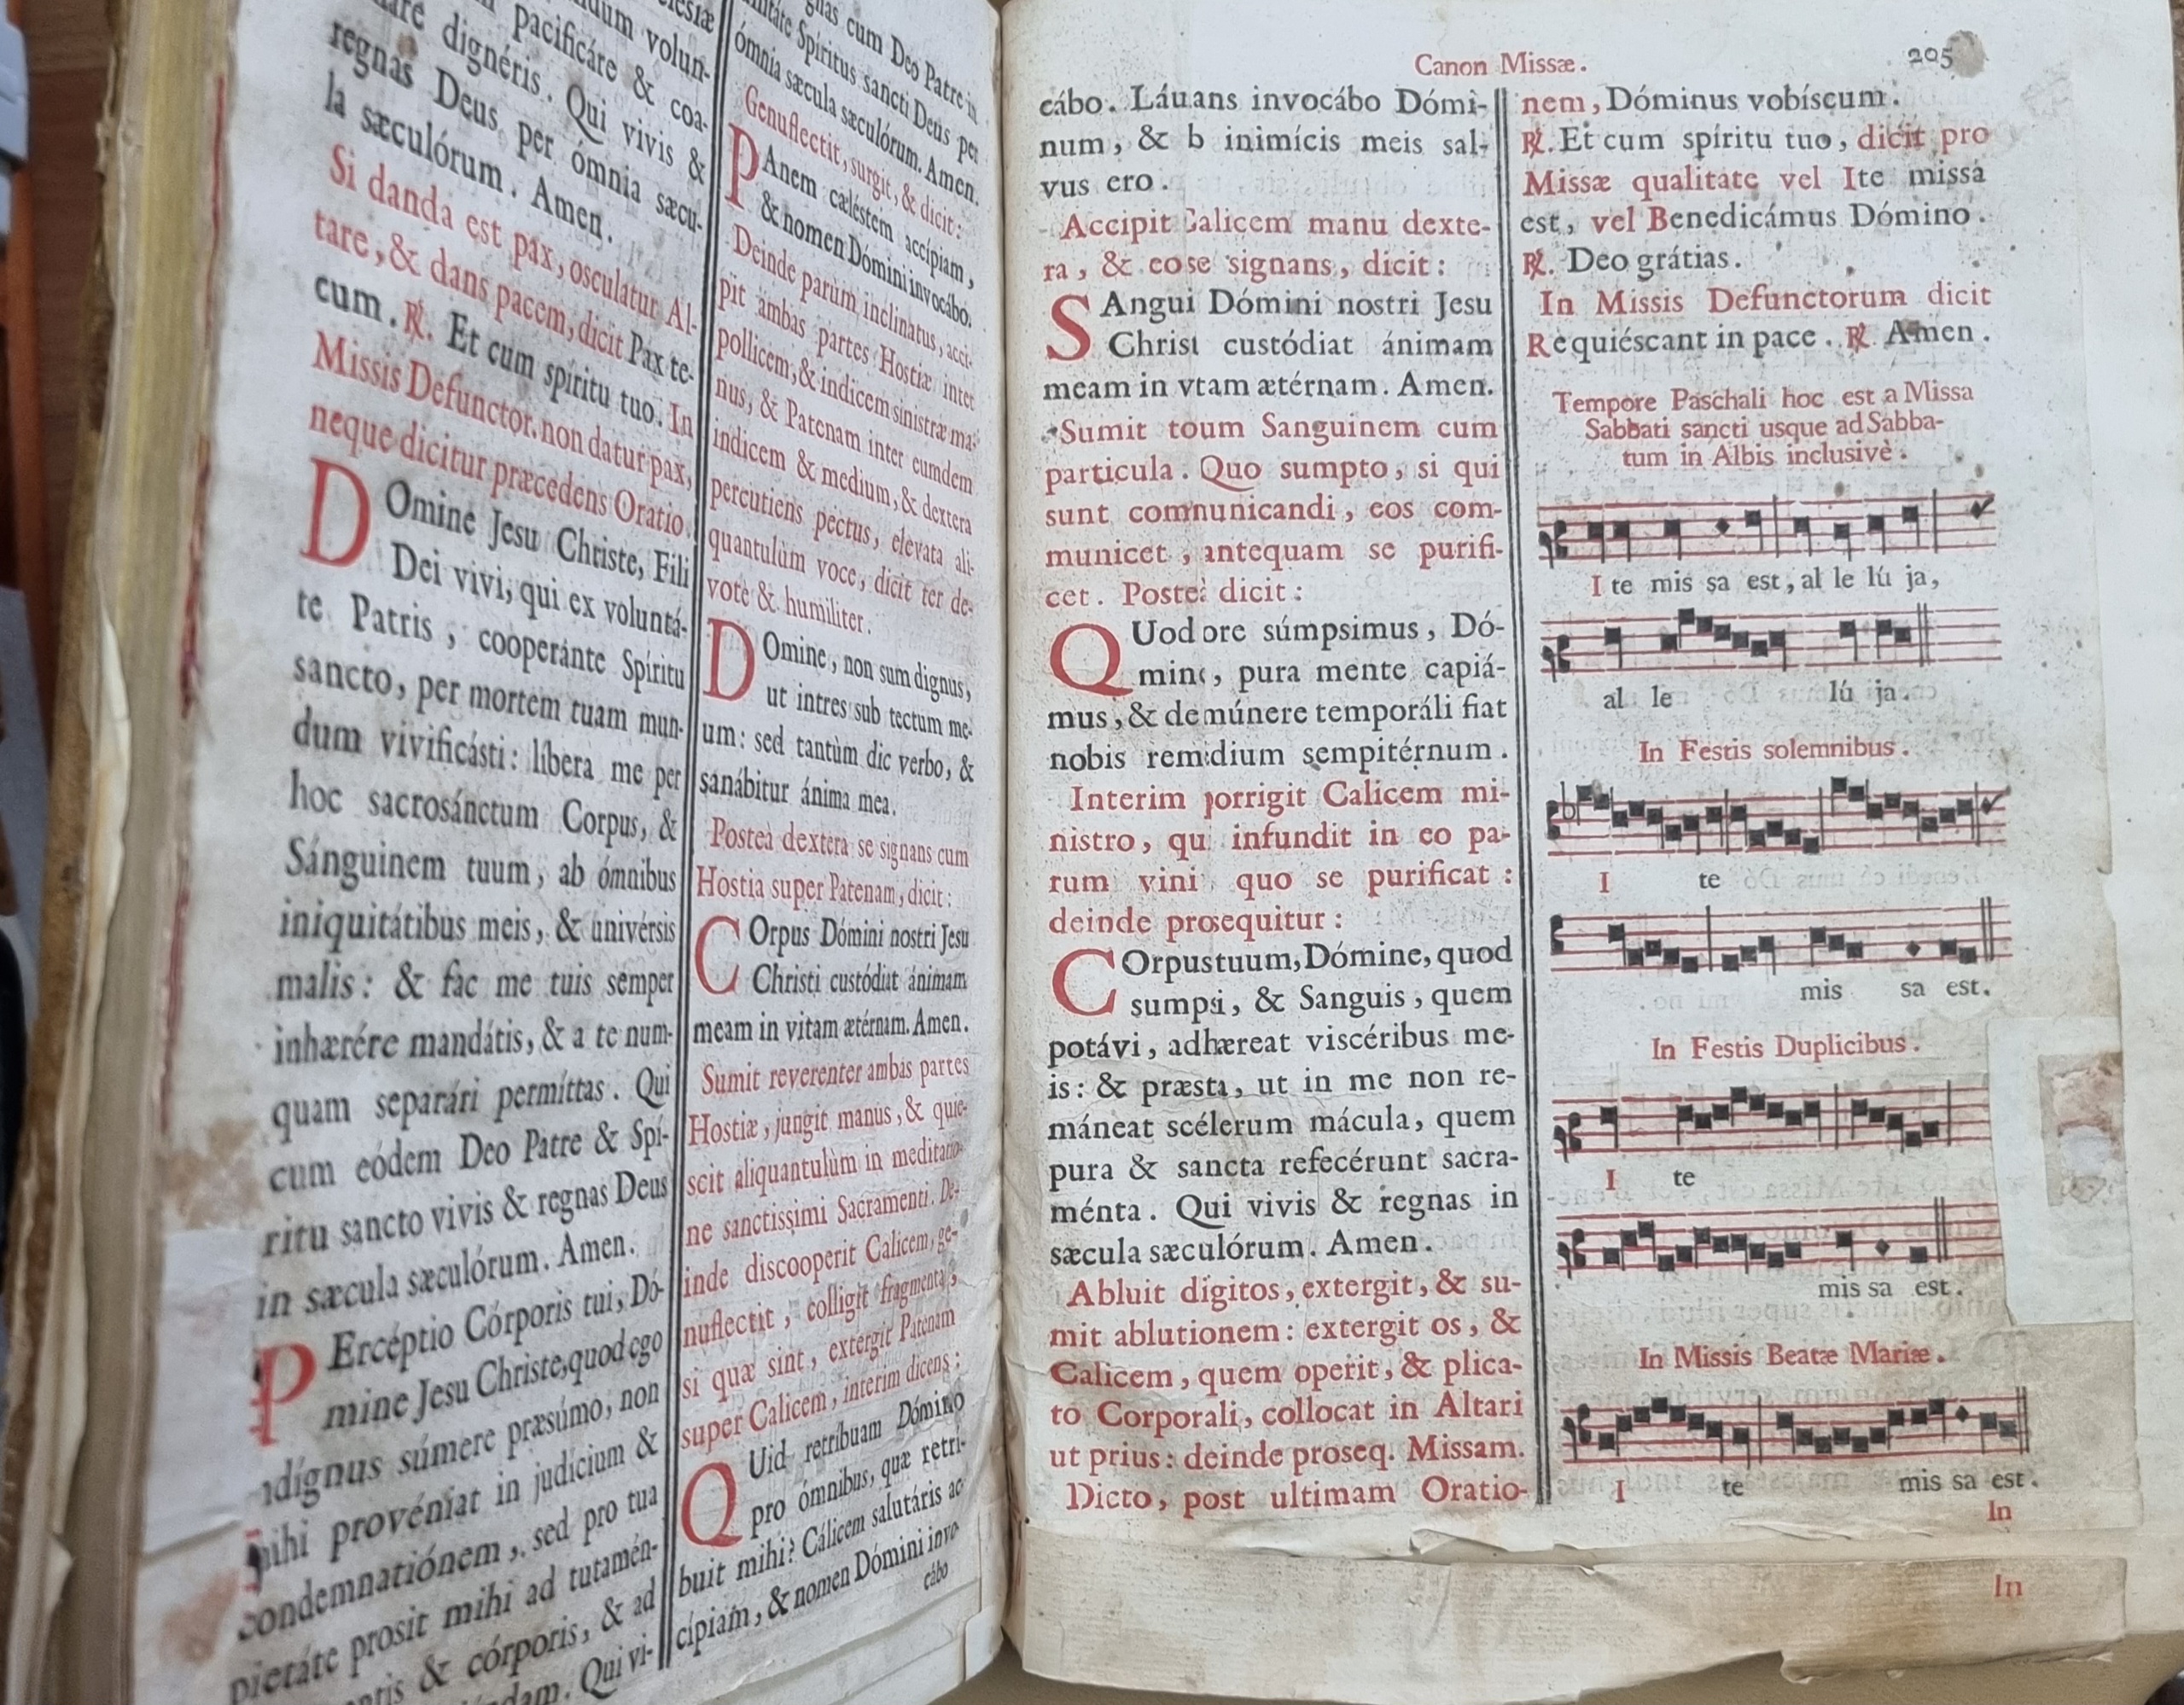 lesiæ
dum volun-
pacificáre & coa-
dignéris. Qui vivis &
regnas Deus per ómnia sæcu-
la sæculórum. Amen.
Si danda est pax, osculatur Al-
tare, & dans pacem, dicit Pax te-
cum. ℟. Et cum spíritu tuo. In
Missis Defunctor. non datur pax,
neque dicitur præcedens Oratio.
DOmine Jesu Christe, Fili
Dei vivi, qui ex voluntá-
te Patris, cooperánte Spíritu
sancto, per mortem tuam mun-
dum vivificásti: líbera me per
hoc sacrosánctum Corpus, &
Sánguinem tuum, ab ómnibus
iniquitátibus meis, & univérsis
malis: & fac me tuis semper
inhærére mandátis, & a te num-
quam separári permíttas. Qui
cum eódem Deo Patre & Spí-
ritu sancto vivis & regnas Deus
in sæcula sæculórum. Amen.
PErcéptio Córporis tui, Dó-
mine Jesu Christe, quod ego
ndígnus súmere præsúmo, non
mihi provéniat in judícium &
condemnatiónem, sed pro tua
pietáte prosit mihi ad tutamén-
& córporis, & ad
Qui vi-
cum Deo Patre in
Spíritus sancti Deus per
ómnia sæcula sæculórum. Amen.
Genuflectit, surgit, & dicit:
PAnem cæléstem accípiam,
& nomen Dómini invocábo.
Deinde parum inclinatus, acci-
pit ambas partes Hostiæ inter
pollicem, & indicem sinistræ ma-
nus, & Patenam inter eumdem
indicem & medium, & dextera
percutiens pectus, elevata ali-
quantulùm voce, dicit ter de-
votè & humiliter.
DOmine, non sum dignus,
ut intres sub tectum me-
um: sed tantùm dic verbo, &
sanábitur ánima mea.
Posteà dextera se signans cum
Hostia super Patenam, dicit:
COrpus Dómini nostri Jesu
Christi custódiat ánimam
meam in vitam ætérnam. Amen.
Sumit reverenter ambas partes
Hostiæ, jungit manus, & quie-
scit aliquantulùm in meditatio-
ne sanctissimi Sacramenti. De-
inde discooperit Calicem, ge-
nuflectit, colligit fragmenta,
si quæ sint, extergit Patenam
super Calicem, interim dicens:
QUid retríbuam Dómino
pro ómnibus, quæ retri-
buit mihi? Cálicem salutáris ac-
cípiam, & nomen Dómini invo-
cábo
Canon Missæ. 205
cábo. Láuans invocábo Dómi-
num, & b inimícis meis sal-
vus ero.
Accipit Calicem manu dexte-
ra, & eo se signans, dicit:
SAngui Dómini nostri Jesu
Christ custódiat ánimam
meam in vtam ætérnam. Amen.
Sumit toum Sanguinem cum
particula. Quo sumpto, si qui
sunt communicandi, eos com-
municet, antequam se purifi-
cet. Posteà dicit:
QUod ore súmpsimus, Dó-
mine, pura mente capiá-
mus, & de múnere temporáli fiat
nobis remdium sempitérnum.
Interim porrigit Calicem mi-
nistro, qu infundit in eo pa-
rum vini quo se purificat:
deinde prosequitur:
COrpus tuum, Dómine, quod
sumpsi, & Sanguis, quem
potávi, adhæreat viscéribus me-
is: & præsta, ut in me non re-
máneat scélerum mácula, quem
pura & sancta refecérunt sacra-
ménta. Qui vivis & regnas in
sæcula sæculórum. Amen.
Abluit digitos, extergit, & su-
mit ablutionem: extergit os, &
Calicem, quem operit, & plica-
to Corporali, collocat in Altari
ut prius: deinde proseq. Missam.
Dicto, post ultimam Oratio-
nem, Dóminus vobíscum.
℟. Et cum spíritu tuo, dicit pro
Missæ qualitate vel Ite missa
est, vel Benedicámus Dómino.
℟. Deo grátias.
In Missis Defunctorum dicit
Requiéscant in pace. ℟. Amen.
Tempore Paschali hoc est a Missa
Sabbati sancti usque ad Sabba-
tum in Albis inclusivè.
I te mis sa est, al le lú ja,
al le lú ja.
In Festis solemnibus.
I te
mis sa est.
In Festis Duplicibus.
I te
mis sa est.
In Missis Beatæ Mariæ.
I te mis sa est.
In
In